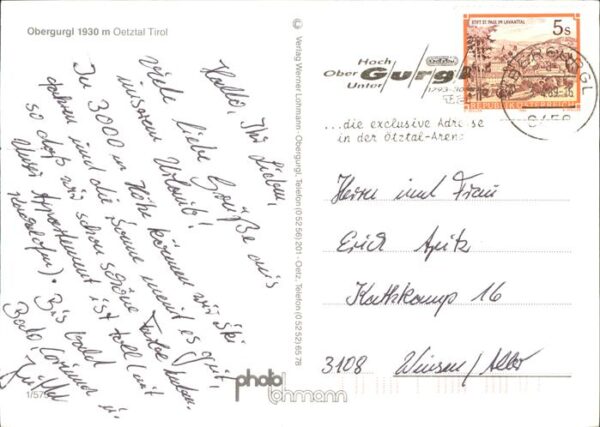 Obergurgl 1930 m Oetztal Tirol
Hallo, Ihr Lieben,
viele liebe Grüße aus
unserem Urlaub!
In 3000 m Höhe können wir Ski
fahren und die Sonne meint es gut,
so daß wir schon schöne Farbe haben.
Unser Appartement ist toll (mit
Kachelofen). Bis bald
Bodo, Corinna u.
1/575
© Verlag Werner Lohmann - Obergurgl, Telefon (0 52 56) 201 - Oetz, Telefon (0 52 52) 65 78
photo
lohmann
Hoch
Ober Gurgl
Unter
1793-30
...die exclusive Adresse
in der Ötztal-Arena
STIFT ST. PAUL IM LAVANTTAL
5s
REPUBLIK ÖSTERREICH
OBERGURGL
6456
Herrn und Frau
Erich Apitz
Kattkamp 16
3108 Winsen/Aller